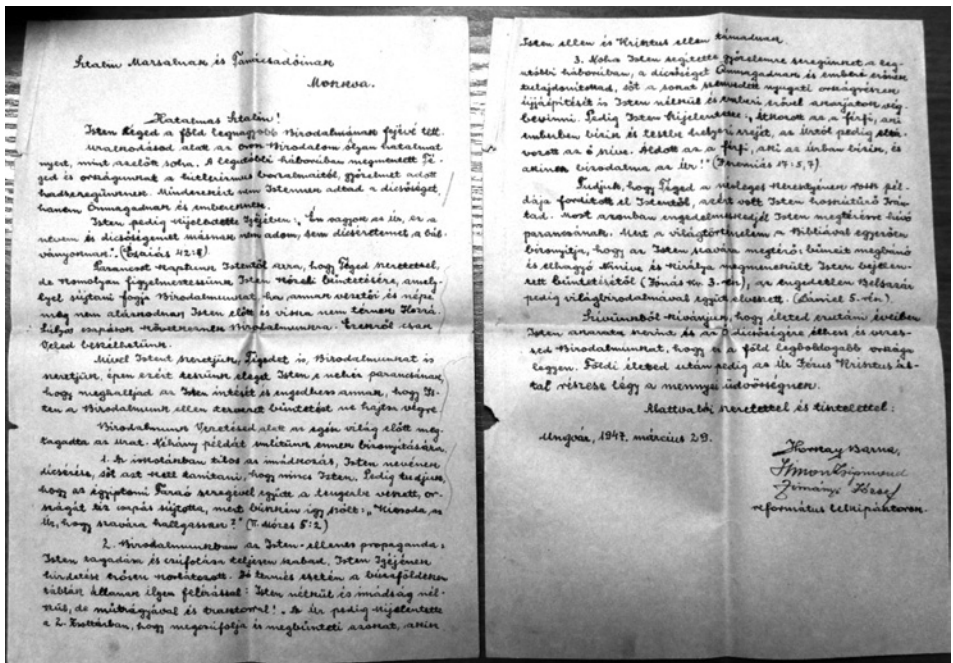 Sztalin Marsalnak és Tanácsadóinak
Moszkva.
Hatalmas Sztalin!
Isten Téged a föld legnagyobb Birodalmának fejévé tett.
Uralkodásod alatt az orosz Birodalom olyan hatalmat
nyert, mint azelőtt soha. A legutóbbi háborúban megmentett Té-
ged és országunkat a hitlerizmus borzalmaitól, győzelmet adott
hadseregünknek. Mindezekért nem Istennek adtad a dicsőséget,
hanem Önmagadnak és embereknek.
Isten pedig kijelentette Igéjében: „Én vagyok az Úr, ez a
nevem és dicsőségemet másnak nem adom, sem dicséretemet a bál-
ványoknak." (Ézsaiás 42:8)
Parancsot kaptunk Istentől arra, hogy Téged szeretettel,
de komolyan figyelmeztessünk Isten közeli büntetésére, amely-
lyel sújtani fogja Birodalmunkat, ha annak vezetői és népe
meg nem alázkodnak Isten előtt és vissza nem térnek Hozzá.
Súlyos csapások következnek Birodalmunkra. Ezekről csak
Veled beszélhetünk.
Mivel Istent szeretjük, Tégedet is, Birodalmunkat is
szeretjük, épen ezért teszünk eleget Isten e nehéz parancsának,
hogy meghalljad az Isten intését és engedhess annak, hogy Is-
ten a Birodalmunk ellen tervezett büntetést ne hajtsa végre.
Birodalmunk Vezetésed alatt az egész világ előtt meg-
tagadta az Urat. Néhány példát említünk ennek bizonyítására.
1. Az iskolákban tilos az imádkozás, Isten nevének
dicsérése, sőt azt kell tanítani, hogy nincs Isten. Pedig tudjuk,
hogy az égyiptomi Faraó seregével együtt a tengerbe veszett, or-
szágát tíz csapás sújtotta, mert büszkén így szólt: „Kicsoda az
Úr, hogy szavára hallgassak?" (II. Mózes 5:2)
2. Birodalmunkban az Isten-ellenes propaganda,
Isten tagadása és csúfolása teljesen szabad, Isten Igéjének
hirdetése erősen korlátozott. Jó termés esetén a búzaföldeken
táblák állanak ilyen felírással: Isten nélkül és imádság nél-
kül, de műtrágyával és traktorral! Az Úr pedig kijelentette
a 2. Zsoltárban, hogy megcsúfolja és megbünteti azokat, akik
Isten ellen és Krisztus ellen támadnak.
3. Noha Isten segítette győzelemre seregünket a leg-
utóbbi háborúban, a dicsőséget Önmagadnak és emberi erőnek
tulajdonítottad, sőt a sokat szenvedett nyugati országrészek
újjáépítését is Isten nélkül és emberi erővel akarjátok vég-
bevinni. Pedig Isten kijelentette: „Átkozott az a férfi, aki
emberben bízik és testbe helyezi erejét, az Úrtól pedig eltá-
vozott az ő szíve. Áldott az a férfi, aki az Úrban bízik, és
akinek bizodalma az Úr!" (Jeremiás 17:5,7)
Tudjuk, hogy Téged a névleges keresztyének rossz pél-
dája fordított el Istentől, azért volt Isten hosszútűrő Irán-
tad. Most azonban engedelmeskedjél Isten megtérésre hívó
parancsának. Mert a világtörténelem a Bibliával egyezően
bizonyítja, hogy az Isten szavára megtérő: bűneit megbánó
és elhagyó Ninive és Királya megmenekült Isten bejelen-
tett büntetésétől (Jónás Kv. 3. rész), az engedetlen Belsazár
pedig világbirodalmával együtt elveszett. (Dániel 5. rész).
Szívünkből kívánjuk, hogy életed ezutáni éveiben
Isten akarata szerint és az Ő dicsőségére élhess és vezes-
sed Birodalmunkat, hogy ez a föld legboldogabb országa
legyen. Földi életed után pedig az Úr Jézus Krisztus ál-
tal részese légy a mennyei üdvösségnek.
Alattvalói szeretettel és tisztelettel:
Ungvár, 1947. március 29.
Horkay Barna,
Simon Zsigmond
Zimányi József
református lelkipásztorok.